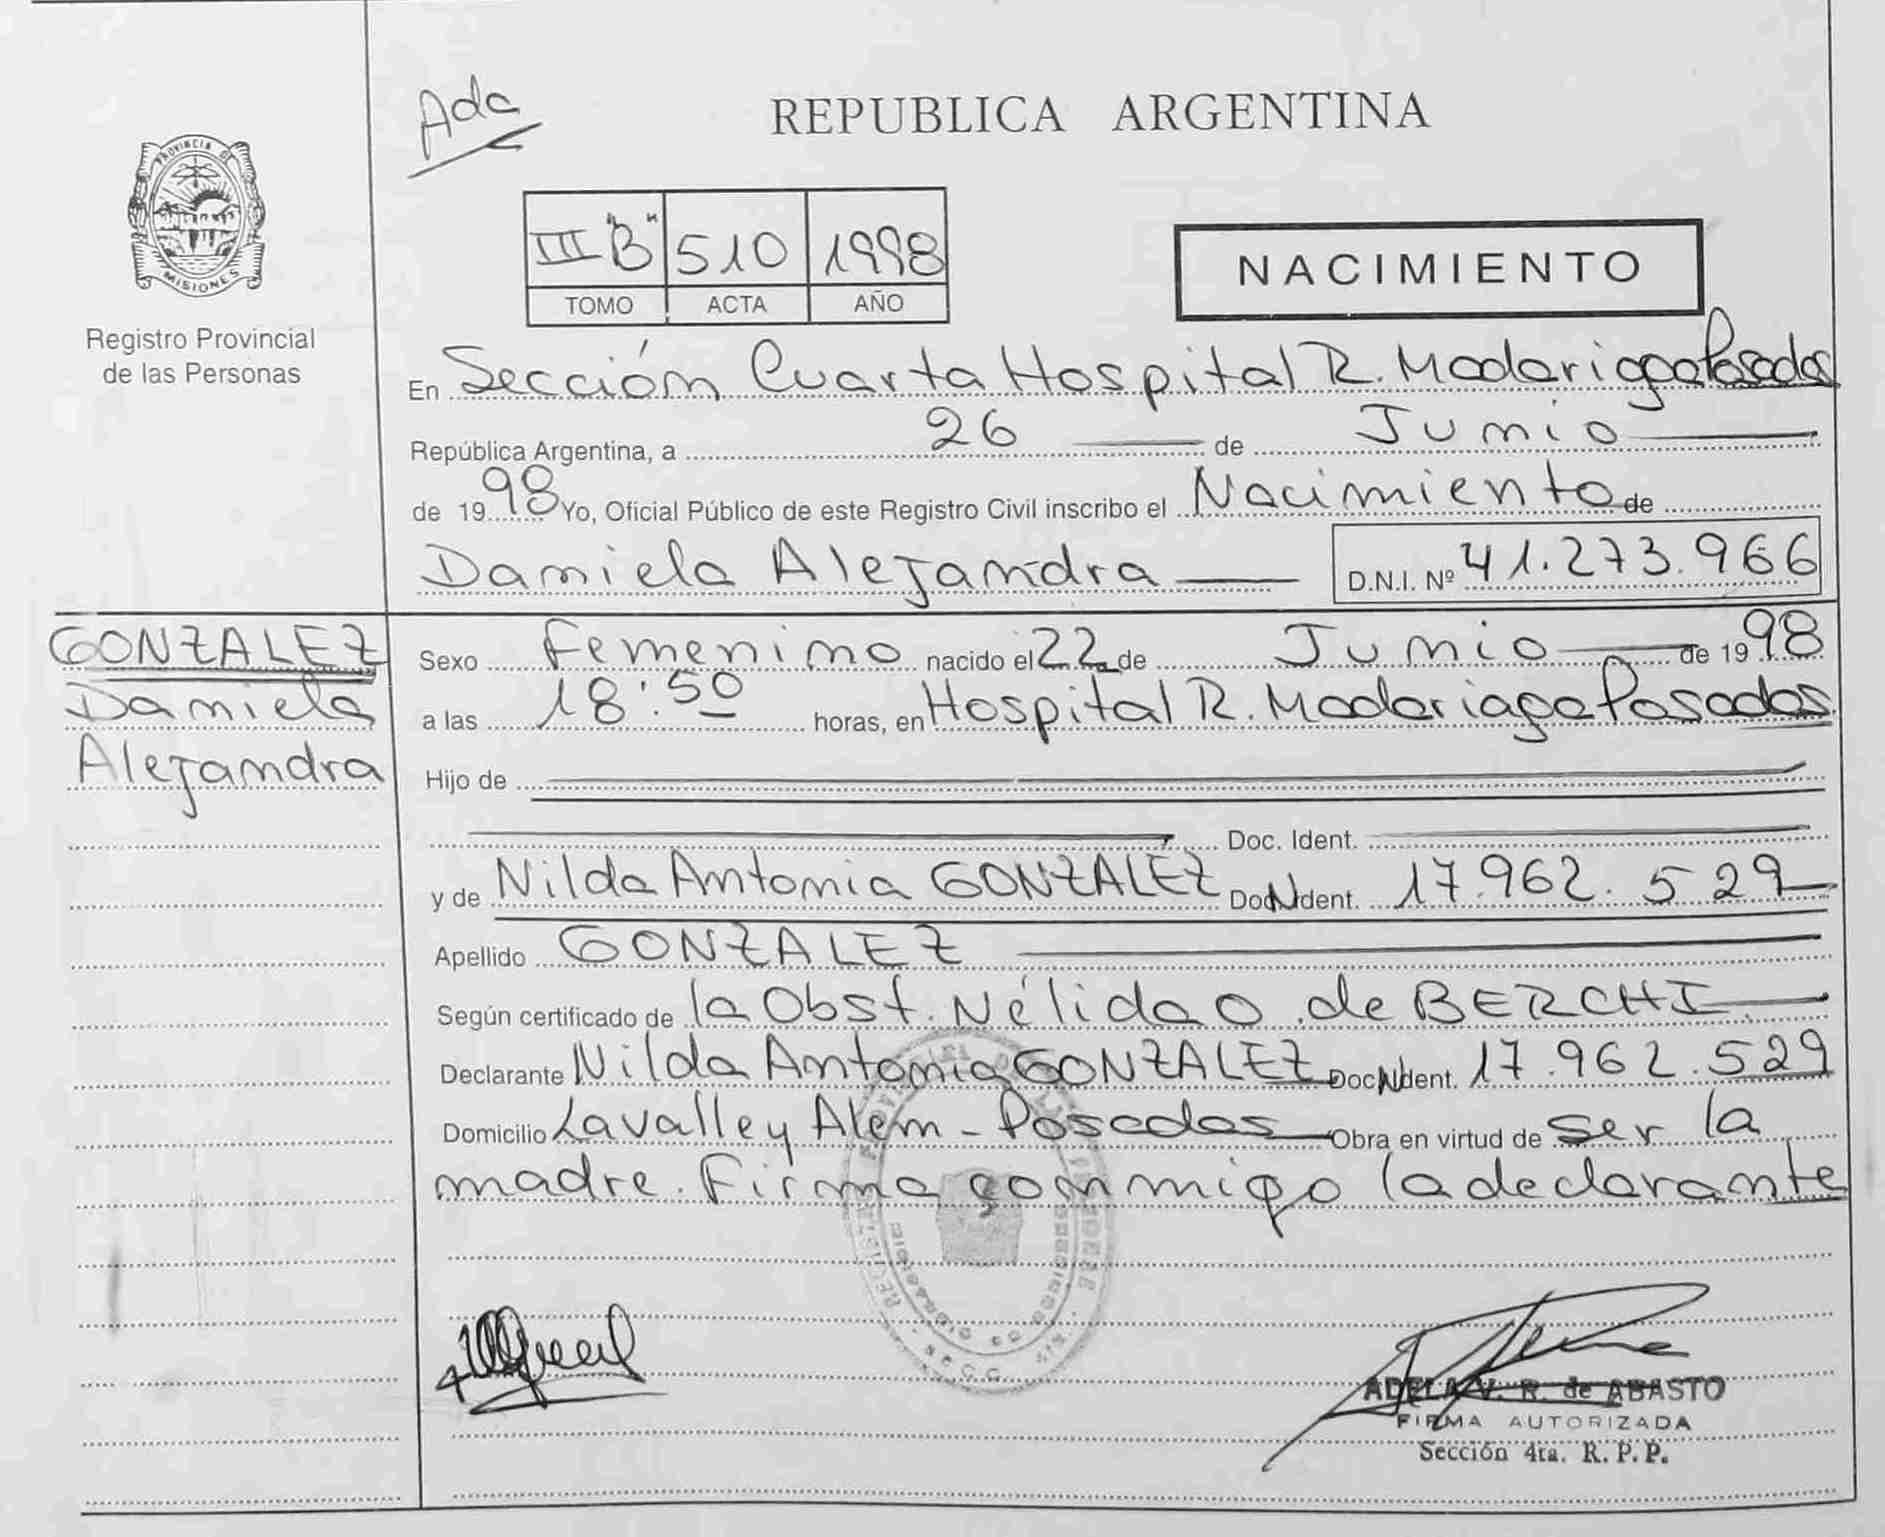 Ada
REPUBLICA ARGENTINA
PROVINCIA DE
MISIONES
Registro Provincial
de las Personas
III "B" 510 1998
TOMO ACTA AÑO
NACIMIENTO
En Sección Cuarta Hospital R. Madariaga Posadas
República Argentina, a 26 de Junio
de 1998 Yo, Oficial Público de este Registro Civil inscribo el Nacimiento de
Daniela Alejandra D.N.I. Nº 41.273.966
GONZALEZ
Daniela
Alejandra
Sexo Femenino nacido el 22 de Junio de 1998
a las 18:50 horas, en Hospital R. Madariaga Posadas
Hijo de
Doc. Ident.
y de Nilda Antonia GONZALEZ Doc. Ident. 17.962.529
Apellido GONZALEZ
Según certificado de la Obst. Nélida O. de BERCHI
Declarante Nilda Antonia GONZALEZ Doc. Ident. 17.962.529
Domicilio Lavalle y Alem - Posadas Obra en virtud de ser la
madre. Firma conmigo la declarante
ADELA V. R. de ABASTO
FIRMA AUTORIZADA
Sección 4ta. R. P. P.